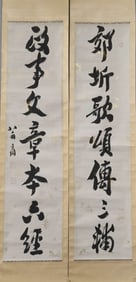 郊圻歌頌傳三輔
政事文章本六經